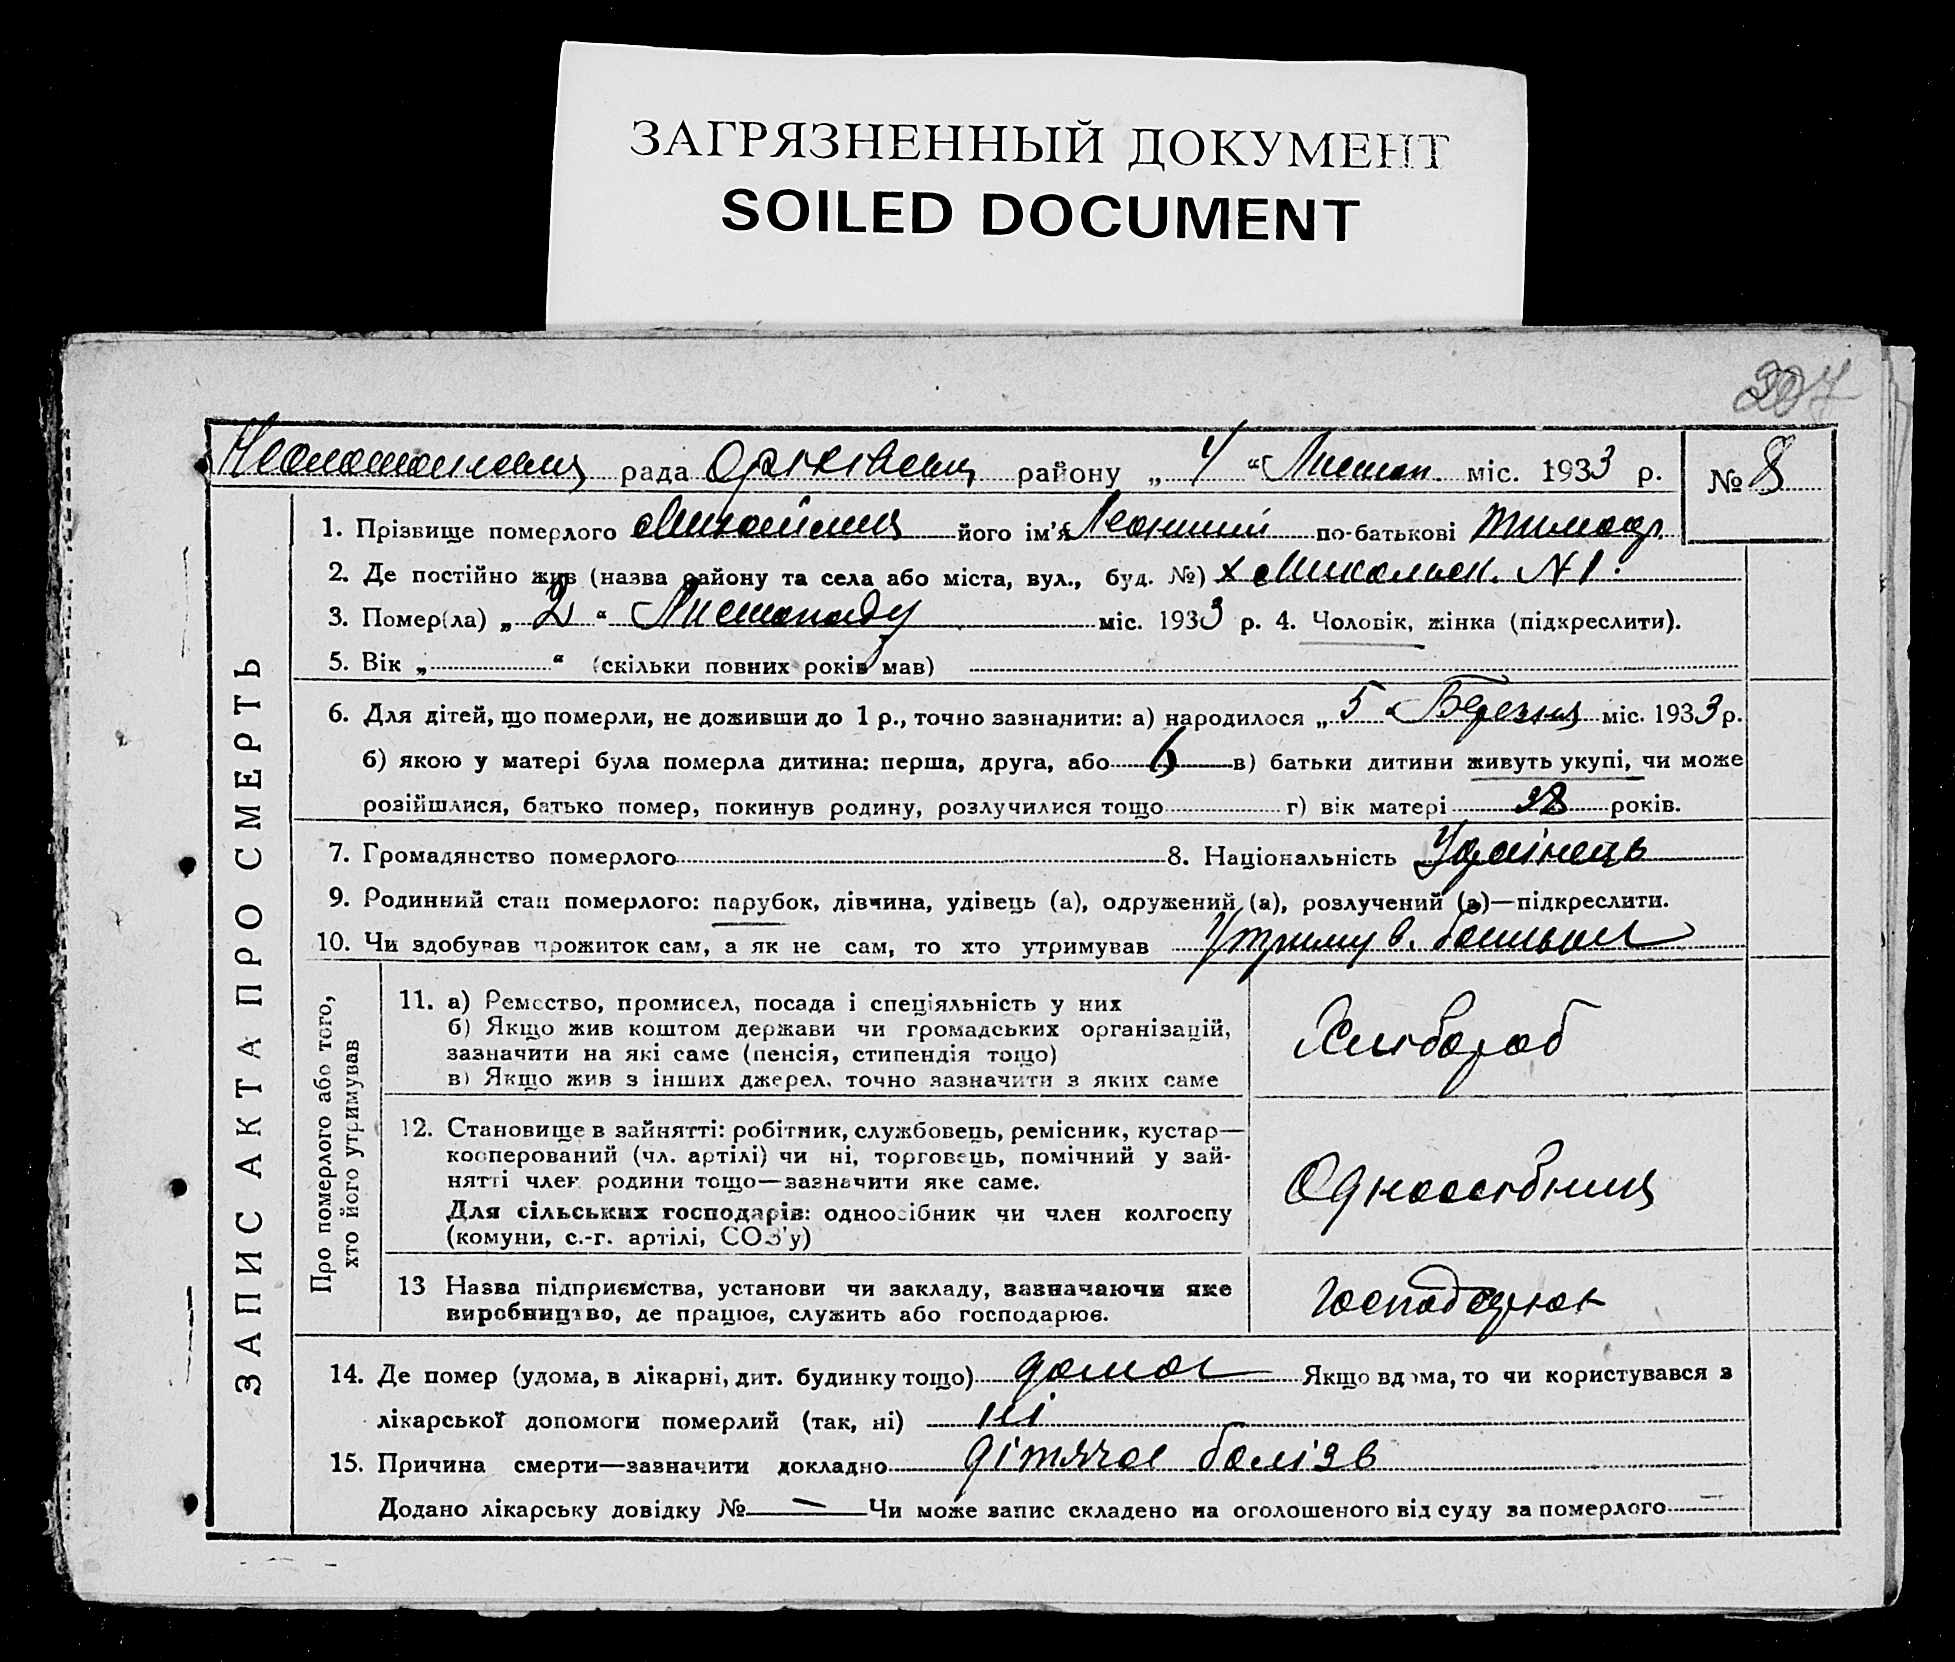 ЗАГРЯЗНЕННЫЙ ДОКУМЕНТ
SOILED DOCUMENT
207
рада району „ 4 “ Листоп. міс. 1933 р. № 8
ЗАПИС АКТА ПРО СМЕРТЬ
1. Прізвище померлого його ім'я по-батькові
2. Де постійно жив (назва району та села або міста, вул., буд. №) х Микольск. N 1.
3. Помер(ла) „ 2 “ Листопаду міс. 1933 р. 4. Чоловік, жінка (підкреслити).
5. Вік „ “ (скільки повних років мав)
6. Для дітей, що померли, не доживши до 1 р., точно зазначити: а) народилося „ 5 “ Березня міс. 1933 р.
б) якою у матері була померла дитина: перша, друга, або 6 в) батьки дитини живуть укупі, чи може
розійшлися, батько помер, покинув родину, розлучилися тощо г) вік матері 38 років.
7. Громадянство померлого 8. Національність Украінець
9. Родинний стан померлого: парубок, дівчина, удівець (а), одружений (а), розлучений (а)—підкреслити.
10. Чи здобував прожиток сам, а як не сам, то хто утримував Утримув. батьки
Про померлого або того,
хто його утримував
11. а) Ремество, промисел, посада і спеціяльність у них
б) Якщо жив коштом держави чи громадських організацій,
зазначити на які саме (пенсія, стипендія тощо)
в) Якщо жив з інших джерел, точно зазначити з яких саме
Хлибороб
12. Становище в зайнятті: робітник, службовець, ремісник, кустар—
кооперований (чл. артілі) чи ні, торговець, помічний у зай-
нятті член родини тощо—зазначити яке саме.
Для сільських господарів: одноосібник чи член колгоспу
(комуни, с.-г. артілі, СОЗ'у)
Одноосібниц
13 Назва підприємства, установи чи закладу, зазначаючи яке
виробництво, де працює, служить або господарює.
14. Де помер (удома, в лікарні, дит. будинку тощо) дома Якщо вдома, то чи користувався з
лікарської допомоги померлий (так, ні) ні
15. Причина смерти—зазначити докладно дітяча болізв
Додано лікарську довідку № — Чи може запис складено на оголошеного від суду за померлого —